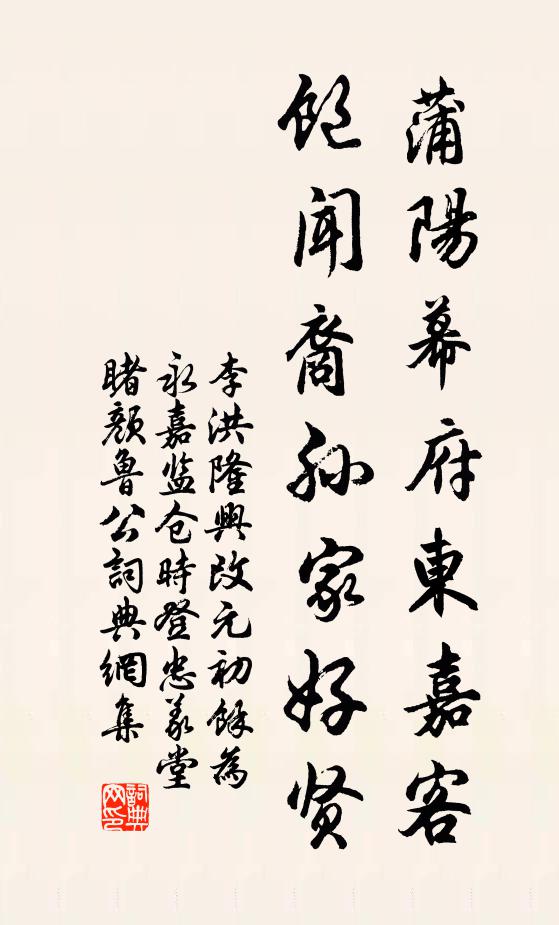 蒲陽幕府東嘉客
飽聞裔孫家好贤
李洪隆興改元初餘為
永嘉监仓時登忠義堂
睹颜魯公詞典網集
詞典网印